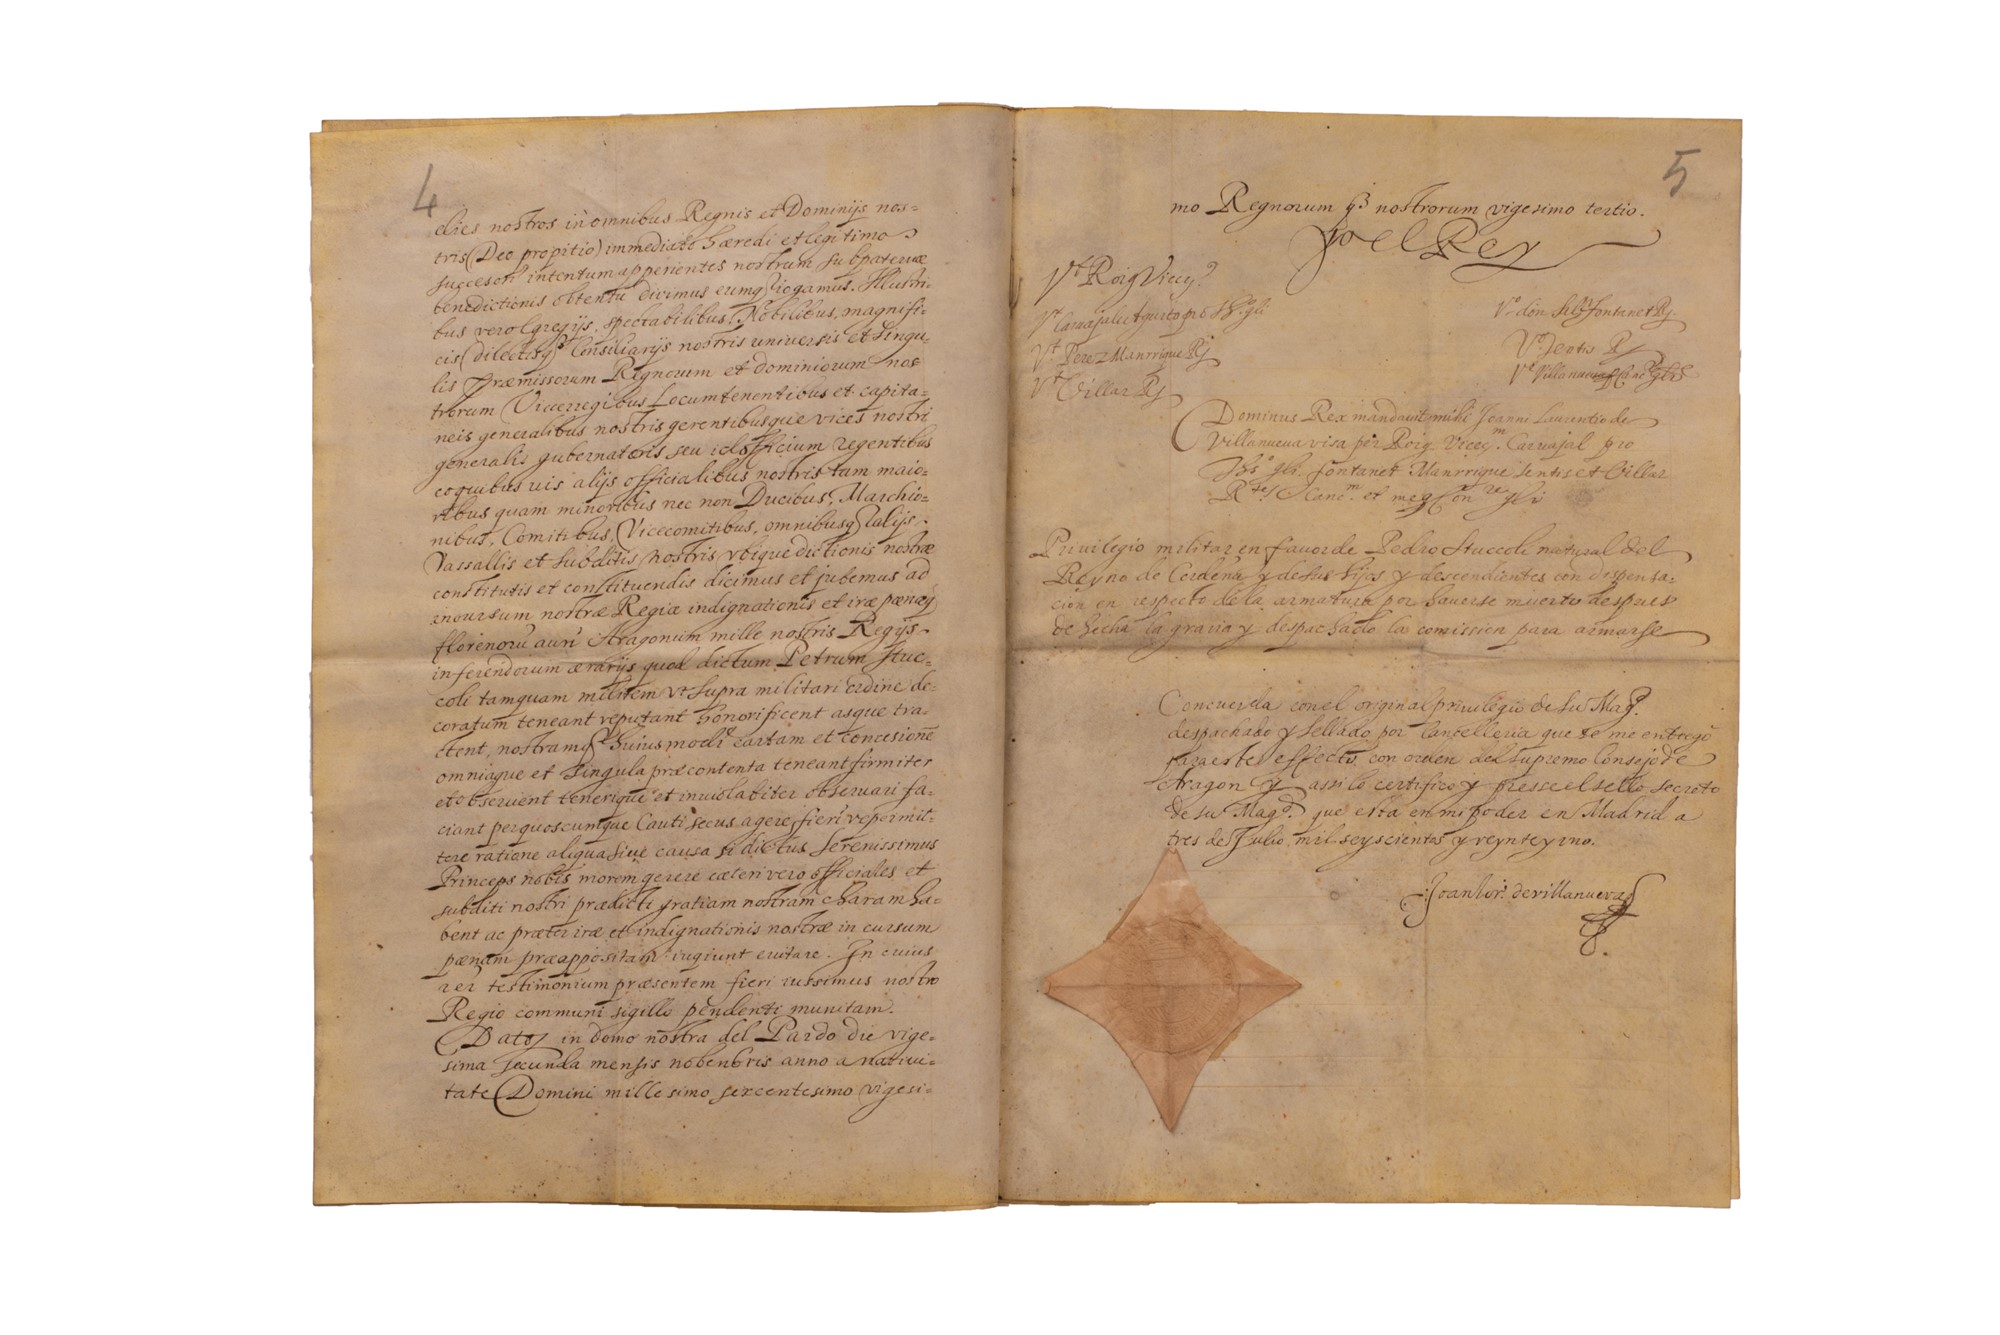 4
elies nostros in omnibus Regnis et Dominijs nos=
tris (Deo propitio) immediato hæredi et legitimo
succesori intentum apperientes nostrum sub paternæ
benedictionis obtentu dicimus eumq rogamus. Illustri-
bus vero Egregijs, spectabilibus, Nobilibus, magnifi-
cis, dilectisq Consiliarijs nostris universis et singu-
lis Præmissorum Regnorum et dominiorum nos
trorum Viceregibus Locumtenentibus et capita-
neis generalibus nostris gerentibusque vices nostri
generalis gubernatoris seu id officium regentibus
coquibus uis alijs officialibus nostris tam maio-
ribus quam minoribus nec non Ducibus, Marchio-
nibus, Comitibus, Vicecomitibus, omnibusq alijs
Vassallis et subditis nostris vbique dictionis nostræ
constitutis et constituendis dicimus et jubemus ad
incursum nostræ Regiæ indignationis et iræ pænæq
florenorū auri Aragonum mille nostris Regijs
inferendorum ærarijs quod dictum Petrum Stuc-
coli tamquam militem vt supra militari ordine de-
coratum teneant reputant honorificent asque tra-
ctent, nostramq huiusmodi cartam et concesionē
omniaque et singula præcontenta teneant firmiter
et observent tenerique et inviolabiter observari fa-
ciant per quoscumque Cauti secus agere, fieri ve permit-
tere ratione aliqua sive causa si dictus Serenissimus
Princeps nobis morem gerere cæteri vero officiales et
subditi nostri prædicti gratiam nostram charam ha-
bent ac præter iræ et indignationis nostræ in cursum
pænam præappositam cupiunt evitare. In cuius
rei testimonium præsentem fieri iussimus nostro
Regio communi sigillo pendenti munitam.
Dats in domo nostra del Pardo die vige-
sima secunda mensis nobenbris anno a nativi-
tate Domini millesimo sexcentesimo vigesi-
5
mo Regnorum q3 nostrorum vigesimo tertio.
Yo el Rey
Vt Roig Vicecs
Vt Carvajal
Vt Perez Manrrique Rs
Vt Villar Rs
Vt don fontanet Rs
Vt Sentis Rs
Vt Villanueva
Dominus Rex mandavit mihi Joanni Laurentio de
Villanueva visa per Roig Vicecm. Carvajal pro
Thso gli. fontanet Manrrique Sentis et Villar
Rtes Cancm. et me
Privilegio militar en favor de Pedro Stuccoli natural del
Reyno de Cerdeña y de sus hijos y descendientes con dispensa-
cion en respecto de la armatura por haverse muerto despues
de hecha la gracia y despachado la comission para armarse
Concuerda con el original privilegio de su Magd.
despachado y sellado por Cancelleria que se me entregó
para este effecto con orden del supremo Consejo de
Aragon y assi lo certifico y presse el sello secreto
de su Magd. que esta en mi poder en Madrid a
tres de Julio mil seyscientos y veynte y uno.
Joan Lor. de Villanueva